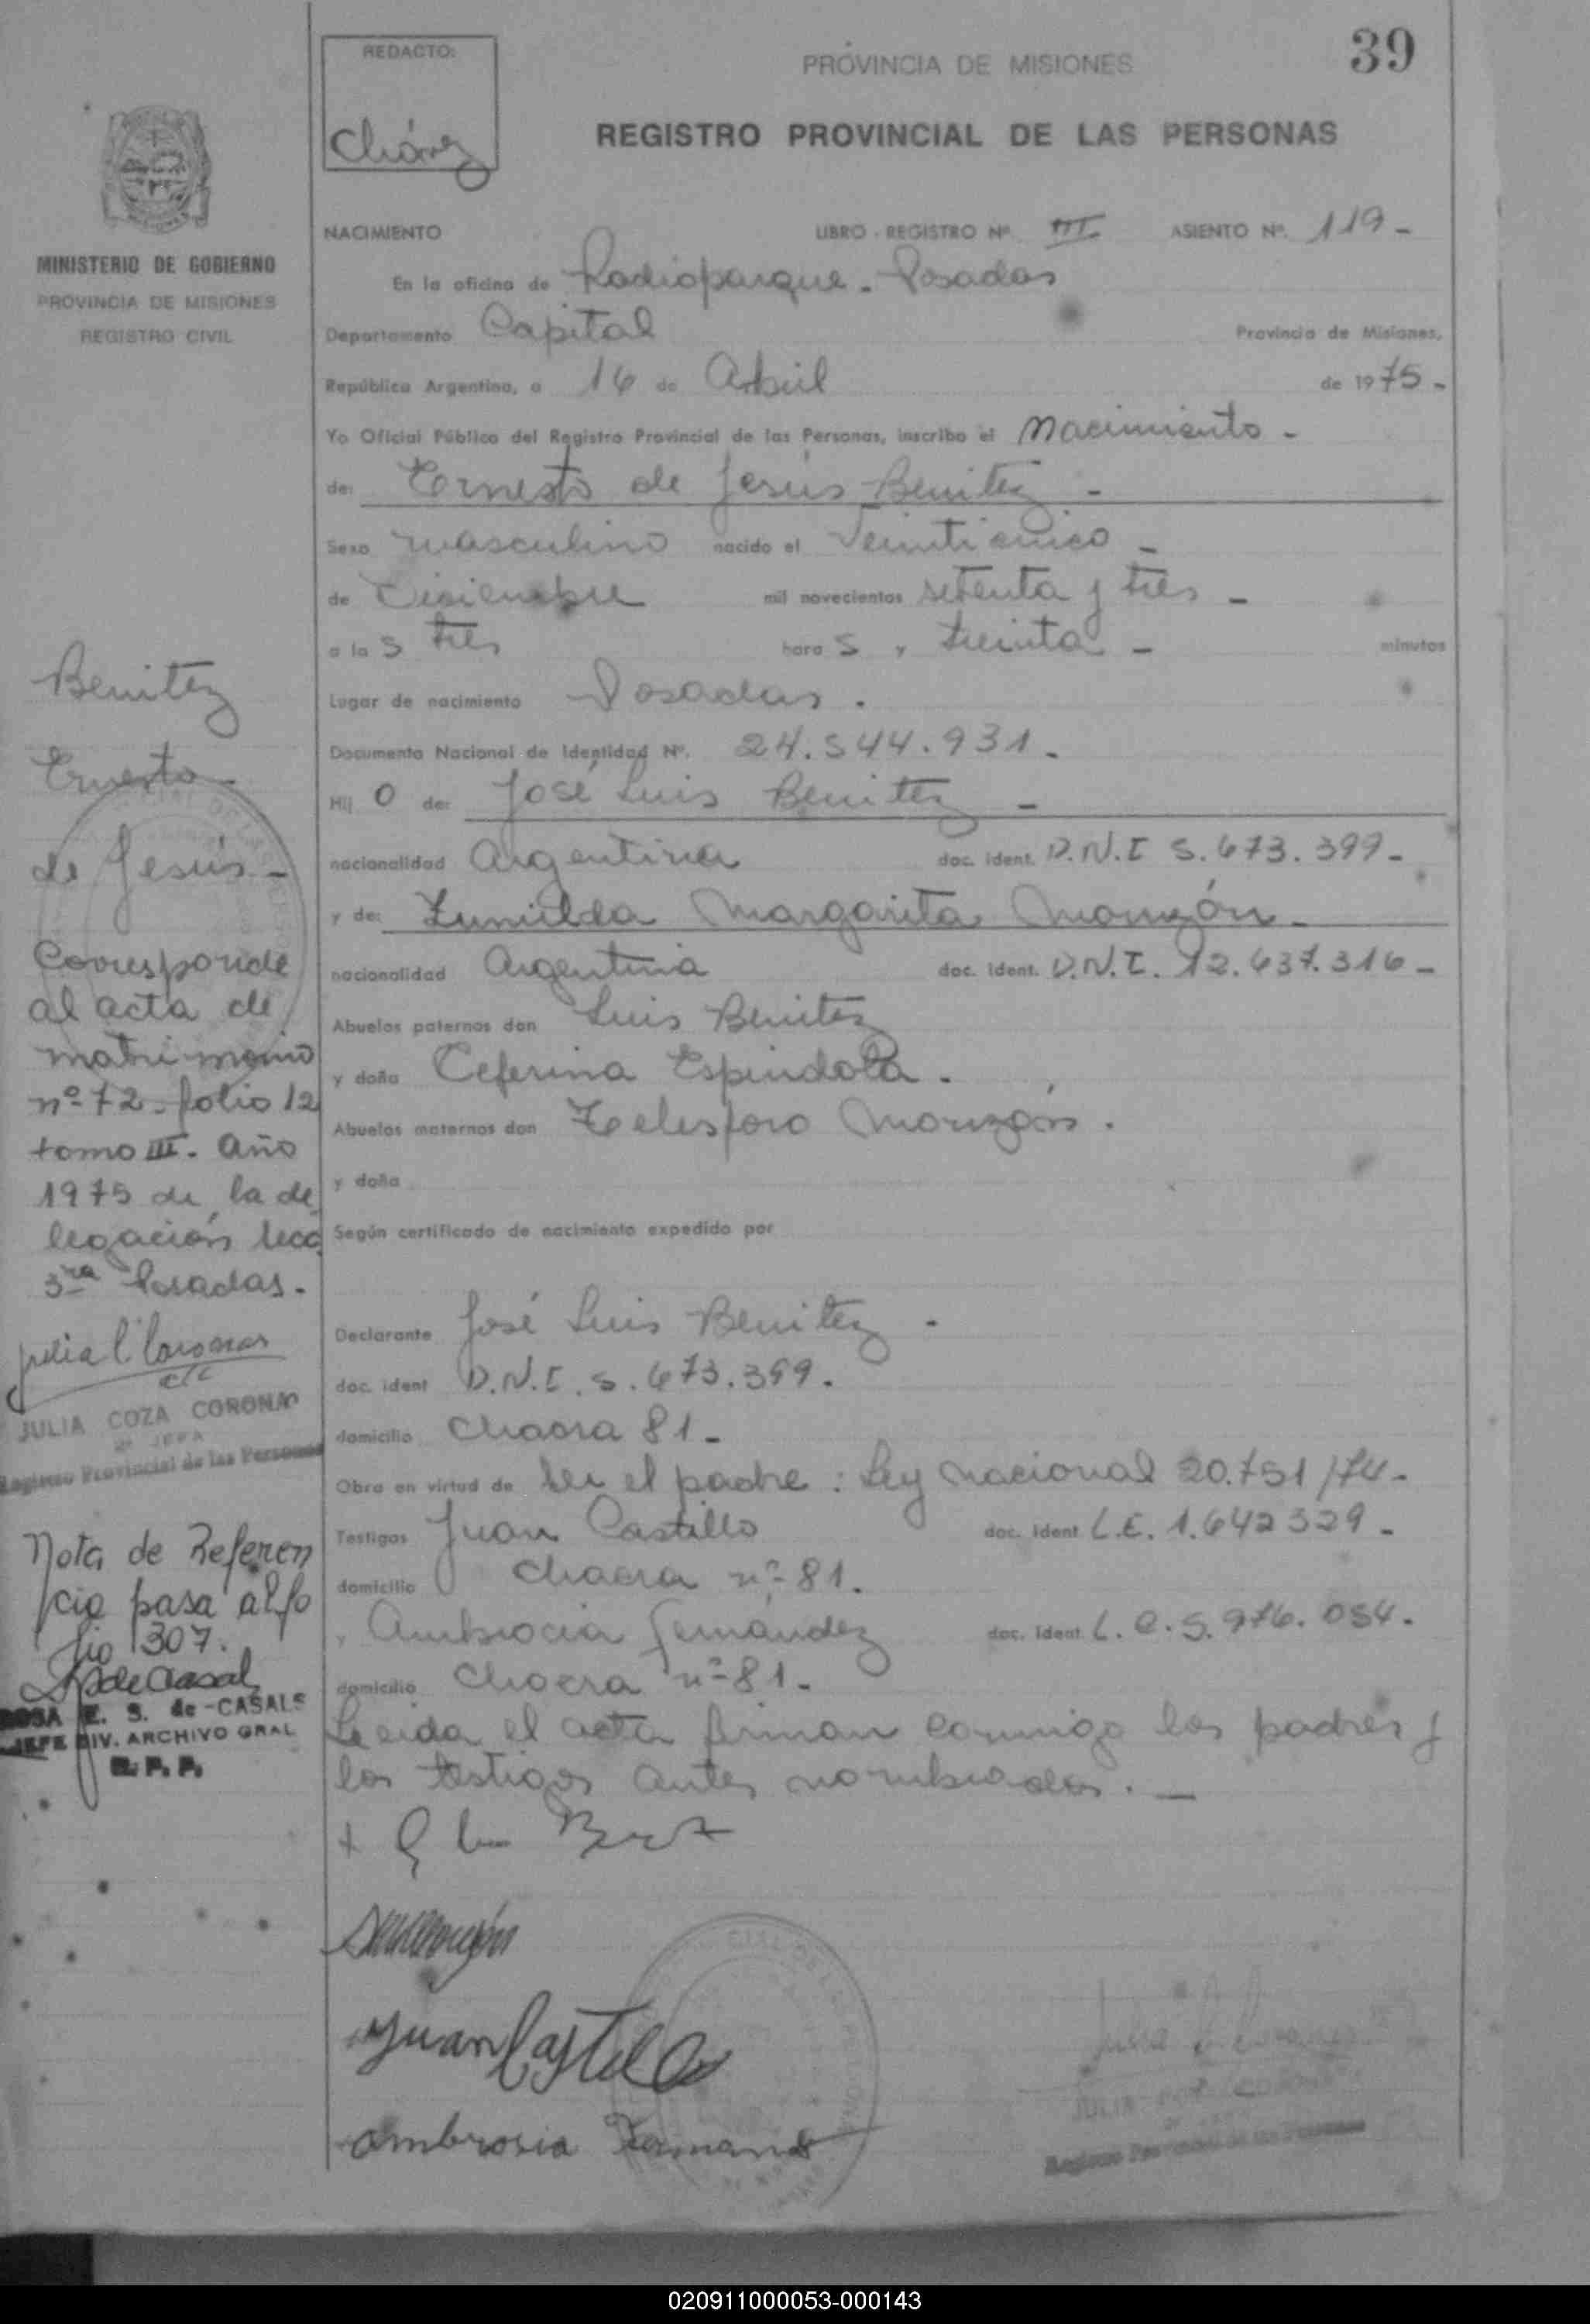 39
REDACTO:
Chávez
PROVINCIA DE MISIONES
REGISTRO PROVINCIAL DE LAS PERSONAS
MINISTERIO DE GOBIERNO
PROVINCIA DE MISIONES
REGISTRO CIVIL
NACIMIENTO LIBRO - REGISTRO Nº III ASIENTO Nº. 119 -
En la oficina de Radioparque - Posadas
Departamento Capital Provincia de Misiones,
República Argentina, a 16 de Abril de 1975 -
Yo Oficial Público del Registro Provincial de las Personas, inscribo el Nacimiento -
de: Ernesto de Jesús Benitez -
Sexo masculino nacido el Veinticinco -
de Diciembre mil novecientos setenta y tres -
a la s tres hora s y treinta - minutos
Lugar de nacimiento Posadas .
Documento Nacional de Identidad Nº. 24.544.931 -
Hij o de: José Luis Benitez -
nacionalidad Argentina doc. ident. D.N.I 5.673.399 -
y de: Zunilda Margarita Monzón -
nacionalidad Argentina doc. ident. D.N.I. 12.637.316 -
Abuelos paternos don Luis Benitez
y doña Ceferina Espindola .
Abuelos maternos don Telesforo Monzón .
y doña
Según certificado de nacimiento expedido por
Declarante José Luis Benitez .
doc. ident D.N.I. 5.673.399 .
domicilio Chacra 81 -
Obra en virtud de ser el padre : Ley Nacional 20.751/74 -
Testigos Juan Castillo doc. ident L.E. 1.642329 -
domicilio Chacra nº 81 .
y Ambrocia Fernández doc. ident L.C. 5.976.054 .
domicilio Chacra nº 81 -
Leida el acta firman conmigo los padres y
los testigos antes nombrados . —
Monzón
Juan Castillo
Ambrosia Fernand
Benitez
Ernesto
de Jesús -
Corresponde
al acta de
matrimonio
nº 72 - folio 12
tomo III. Año
1975 de la de
legación Secc
3ra Posadas .
Julia C. Coronas
c/c
JULIA COZA CORONAS
2º JEFA
Registro Provincial de las Personas
Nota de Referen
cia pasa al fo
lio 307.
S de Casal
ROSA E. S. de CASALS
JEFE DIV. ARCHIVO GRAL
R. P. P.
Registro Provincial de las Personas
020911000053-000143